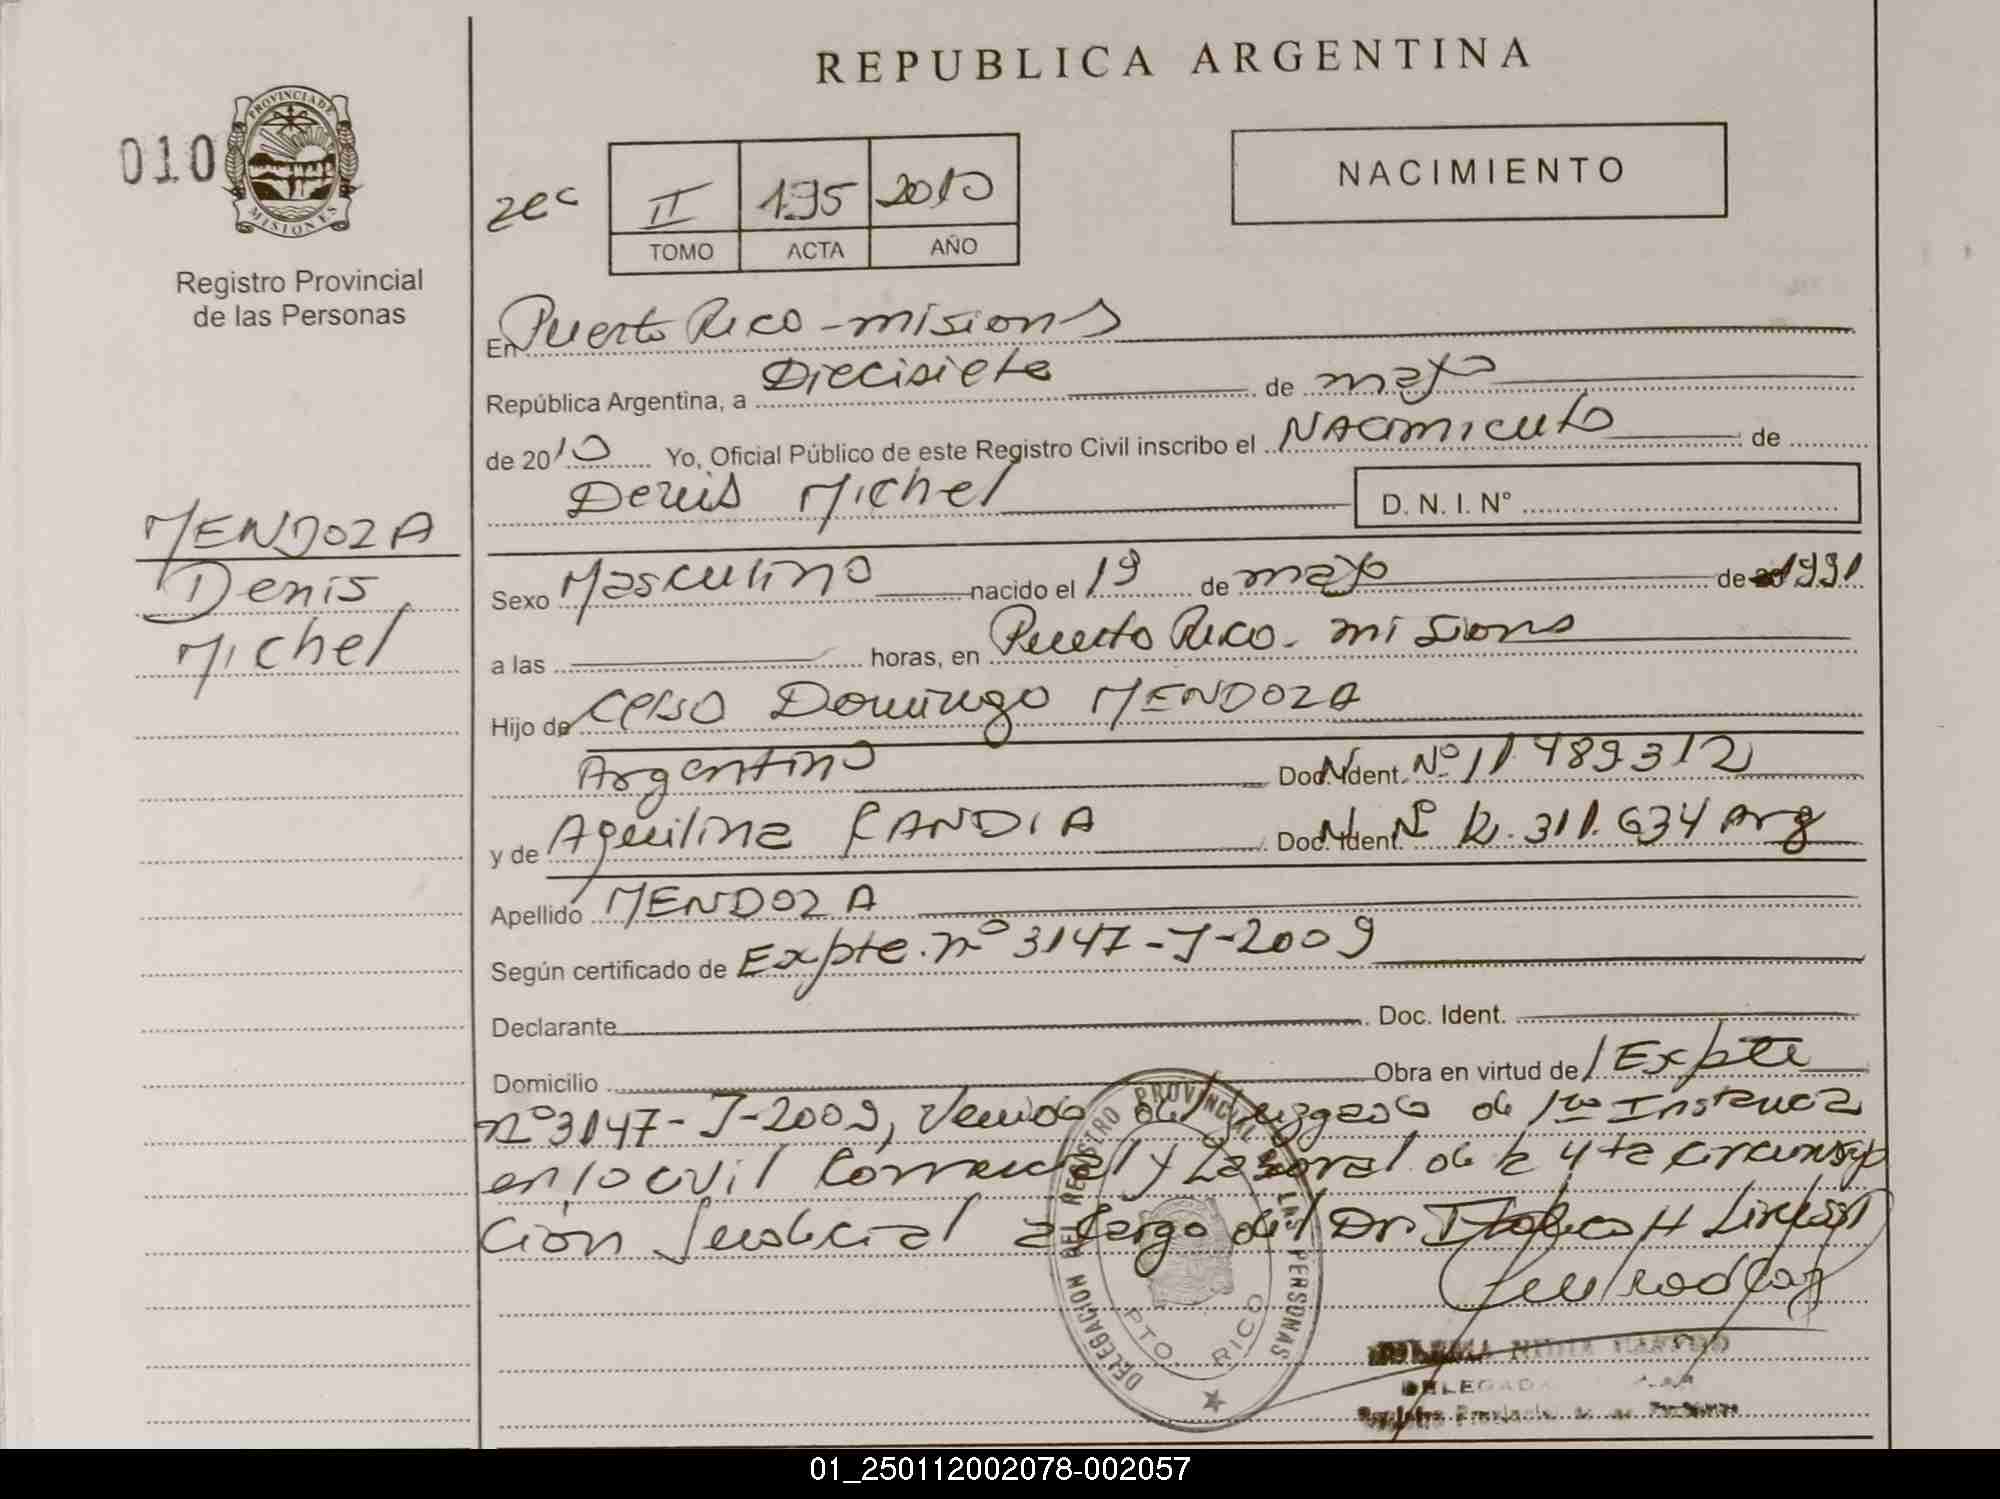 REPUBLICA ARGENTINA
010
PROVINCIA DE
MISIONES
Registro Provincial
de las Personas
zec
II 195 2010
TOMO ACTA AÑO
NACIMIENTO
En Puerto Rico - misions
República Argentina, a Diecisiete de mayo
de 2010 Yo, Oficial Público de este Registro Civil inscribo el NACimiento de
Denis Michel D. N. I. N°
MENDOZA
Denis
Michel
Sexo Masculino nacido el 19 de mayo de 1991
a las horas, en Puerto Rico - misions
Hijo de Celso Domingo MENDOZA
Argentino Doc. Ident. Nº 11.489.312
y de Aquilina CANDIA Doc. Ident. Nº 12.311.634 Arg
Apellido MENDOZA
Según certificado de Expte. nº 3147-J-2009
Declarante Doc. Ident.
Domicilio Obra en virtud de / Expte
nº 3147-J-2009, Venido del Juzgado de 1ra Instancia
en lo civil Comercial y Laboral de la 4ta circunscrip
ción Judicial a Cargo del Dr.
DELEGACION DEL REGISTRO PROVINCIAL DE LAS PERSONAS
PTO RICO
DELEGADA
Registro Provincial de las Personas
01_250112002078-002057